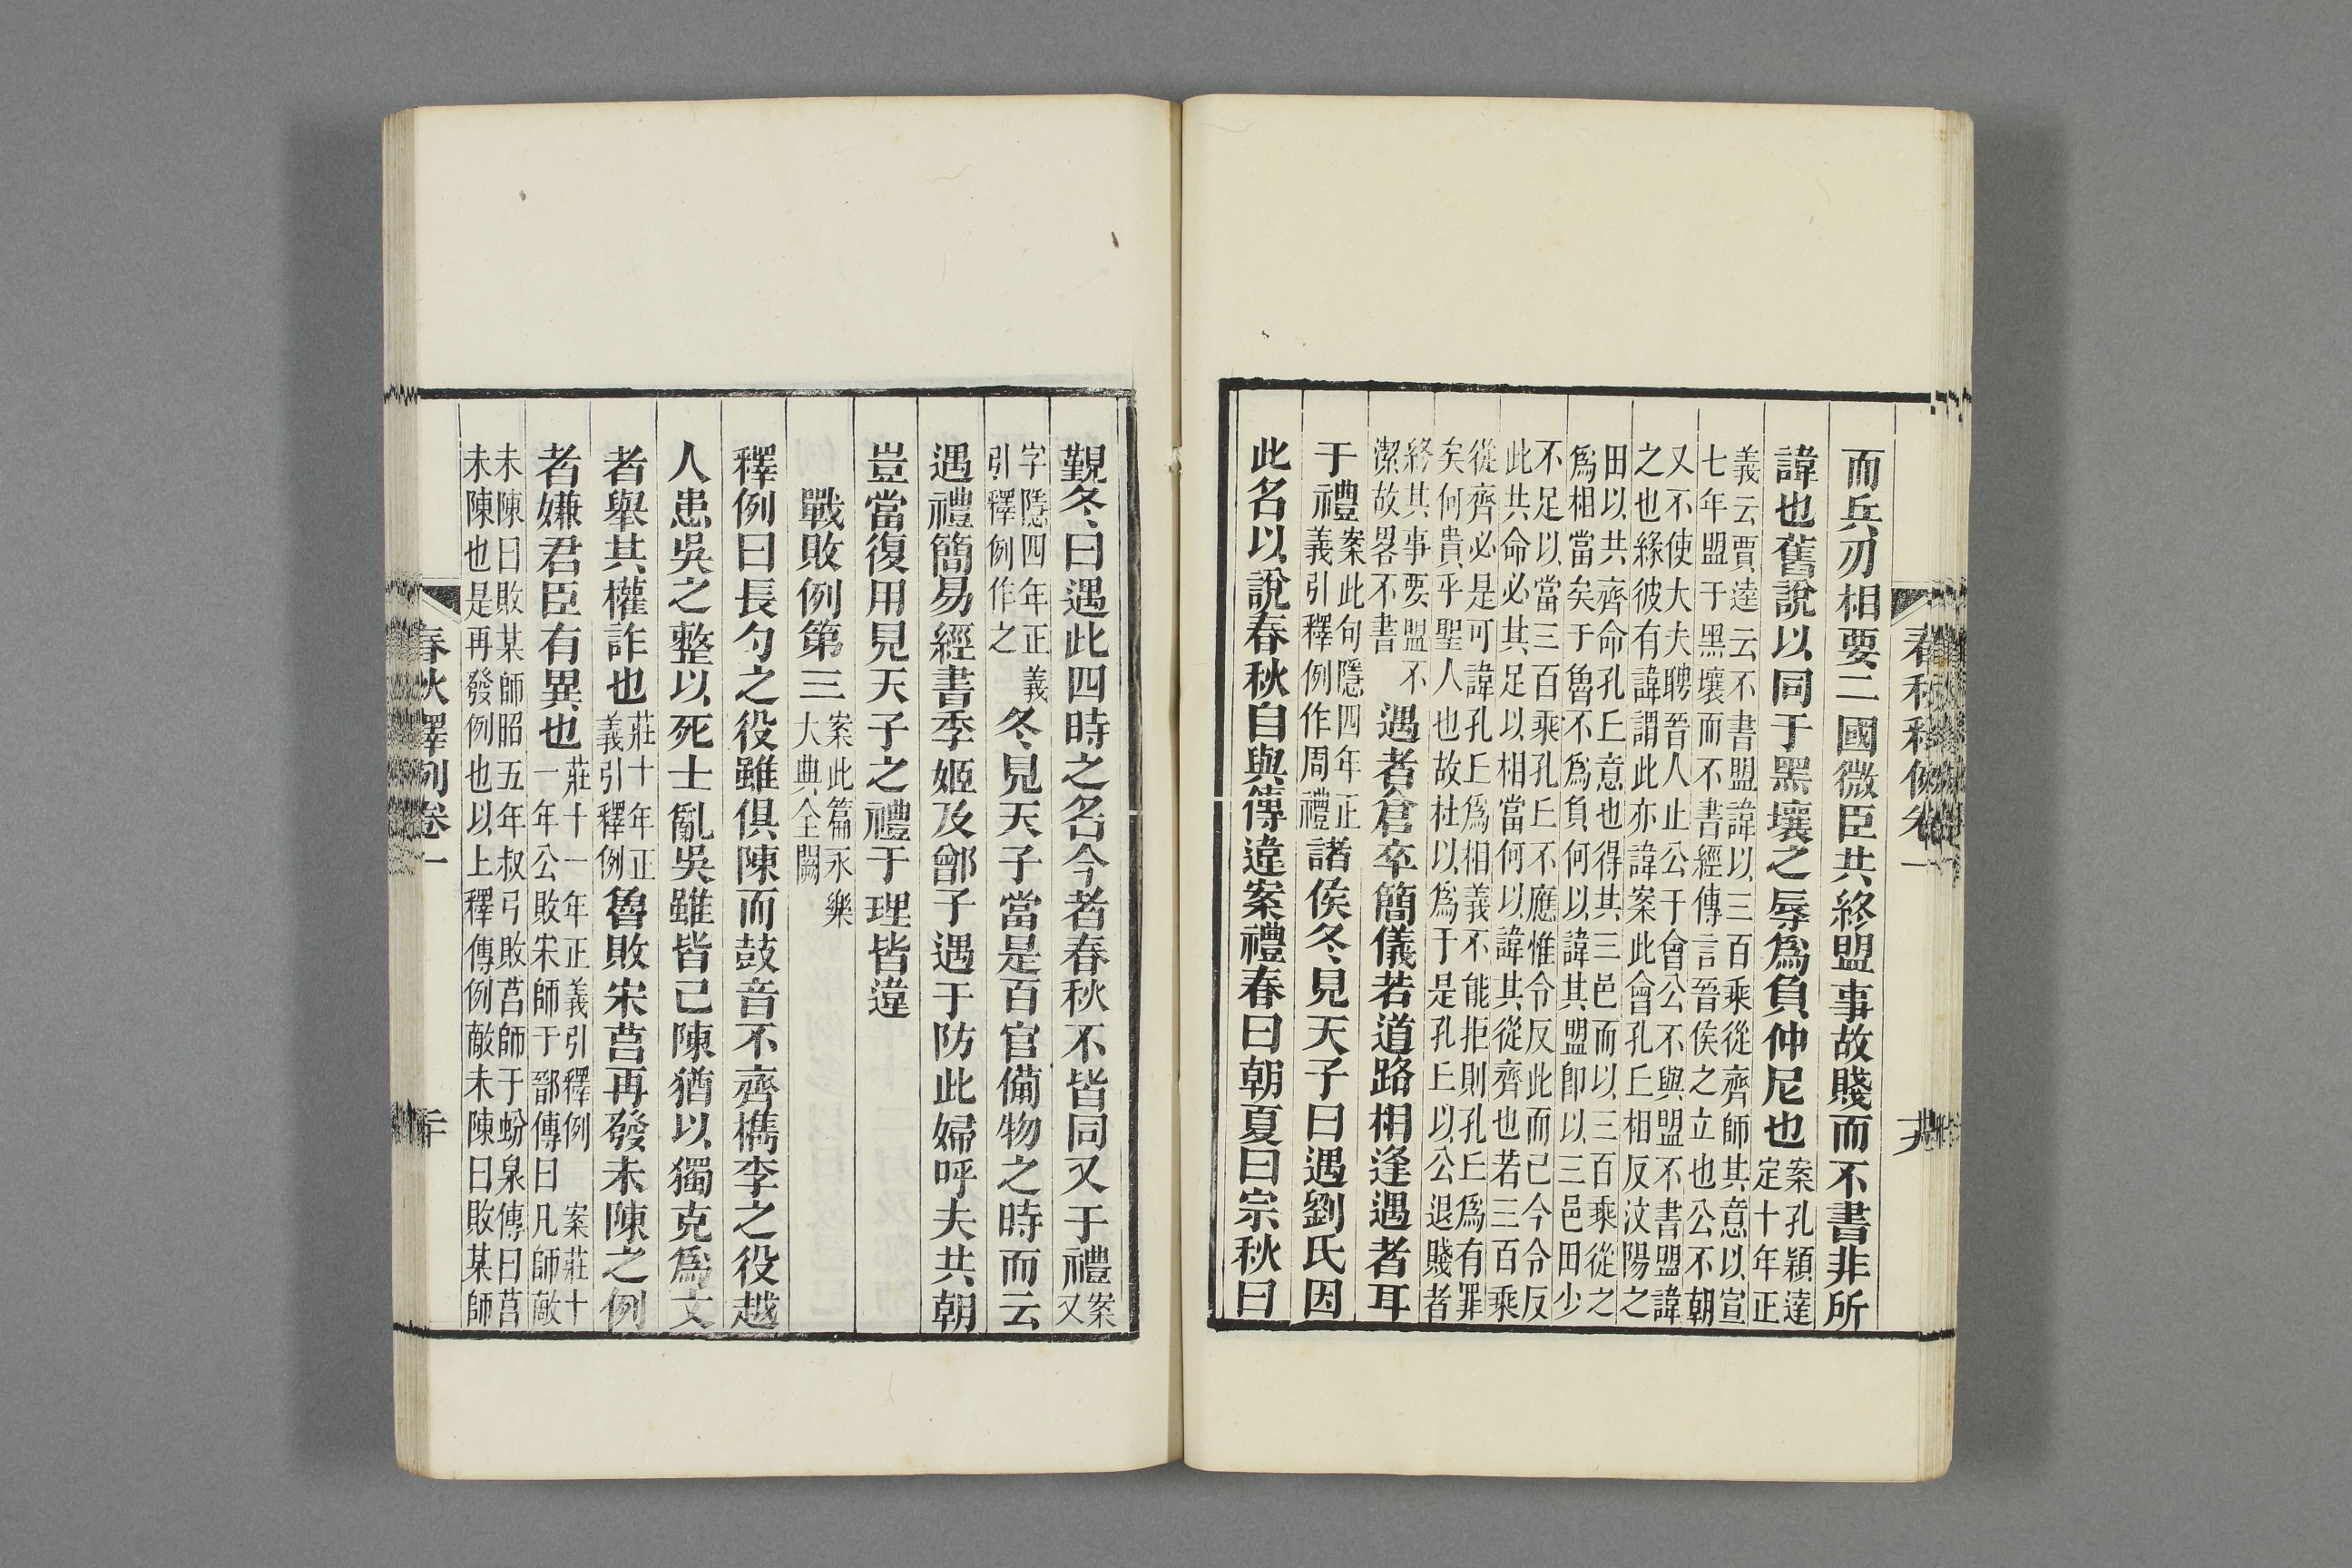 而兵刃相要二國微臣共終盟事故賤而不書非所
諱也舊說以同于黑壤之辱爲負仲尼也案孔穎達
定十年正
義云賈逵云不書盟諱以三百乘從齊師其意以宣
七年盟于黑壤而不書經傳言晉侯之立也公不朝
又不使大夫聘晉人止公于會公不與盟不書盟諱
之也緣彼有諱謂此亦諱案此會孔丘相反汶陽之
田以共齊命孔丘意也得其三邑而以三百乘從之
爲相當矣于魯不爲負何以諱其盟卽以三邑田少
不足以當三百乘孔丘不應惟令反此而已今令反
此共命必其足以相當何以諱其從齊也若三百乘
從齊必是可諱孔丘爲相義不能拒則孔丘爲有罪
矣何貴乎聖人也故杜以爲于是孔丘以公退賤者
終其事要盟不
潔故畧不書
遇者倉卒簡儀若道路相逢遇者耳
于禮案此句隱四年正
義引釋例作周禮
諸侯冬見天子曰遇劉氏因
此名以說春秋自與傳違案禮春曰朝夏曰宗秋曰
覲冬曰遇此四時之名今者春秋不皆同又于禮案
又
字隱四年正義
引釋例作之
冬見天子當是百官備物之時而云
遇禮簡易經書季姬及鄫子遇于防此婦呼夫共朝
豈當復用見天子之禮于理皆違
戰敗例第三案此篇永樂
大典全闕
釋例曰長勺之役雖俱陳而鼓音不齊檇李之役越
人患吳之整以死士亂吳雖皆已陳猶以獨克爲文
者舉其權詐也莊十年正
義引釋例
魯敗宋莒再發未陳之例
者嫌君臣有異也莊十一年正義引釋例 案莊十
一年公敗宋師于鄑傳曰凡師敵
未陳曰敗某師昭五年叔弓敗莒師于蚡泉傳曰莒
未陳也是再發例也以上釋傳例敵未陳曰敗某師
春秋釋例卷一